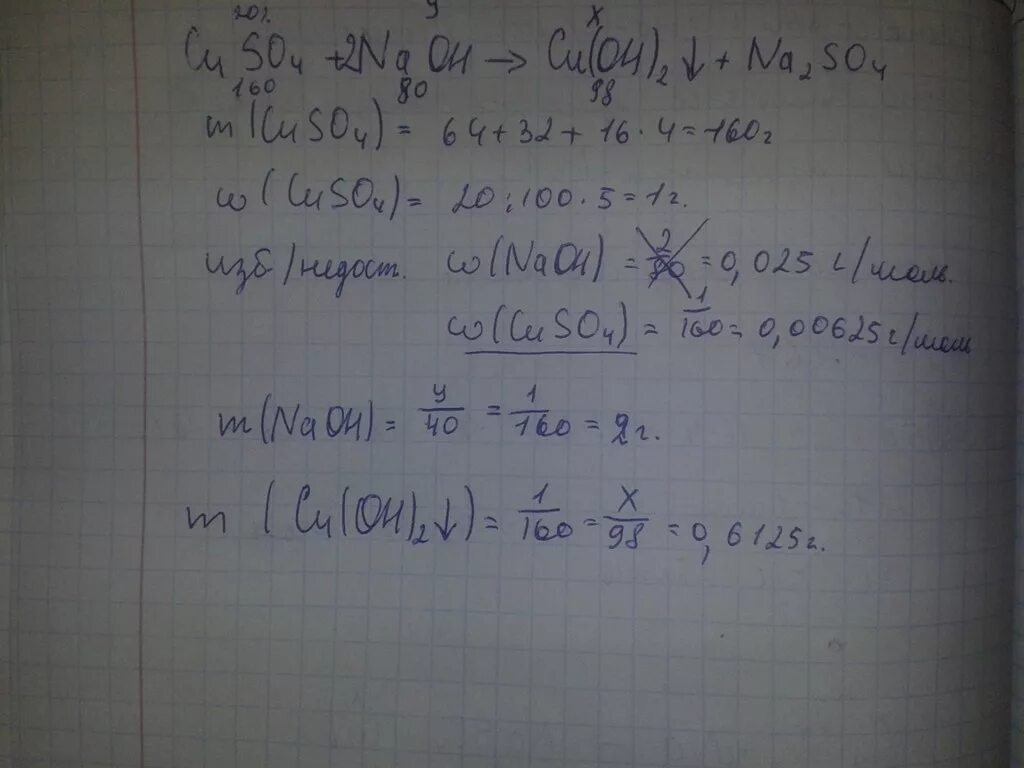 20%. y x
CuSO₄ + 2NaOH → Cu(OH)₂↓ + Na₂SO₄
160 80 98
m(CuSO₄) = 64+32+16·4=160г
ω(CuSO₄)= 20:100·5=1г.
изб/недост. ω(NaOH) = 2/80 = 0,025 г/моль.
ω(CuSO₄) = 1/160 = 0,00625 г/моль
m(NaOH) = y/40 = 1/160 = 2г.
m (Cu(OH)₂↓) = 1/160 = x/98 = 0,6125г.